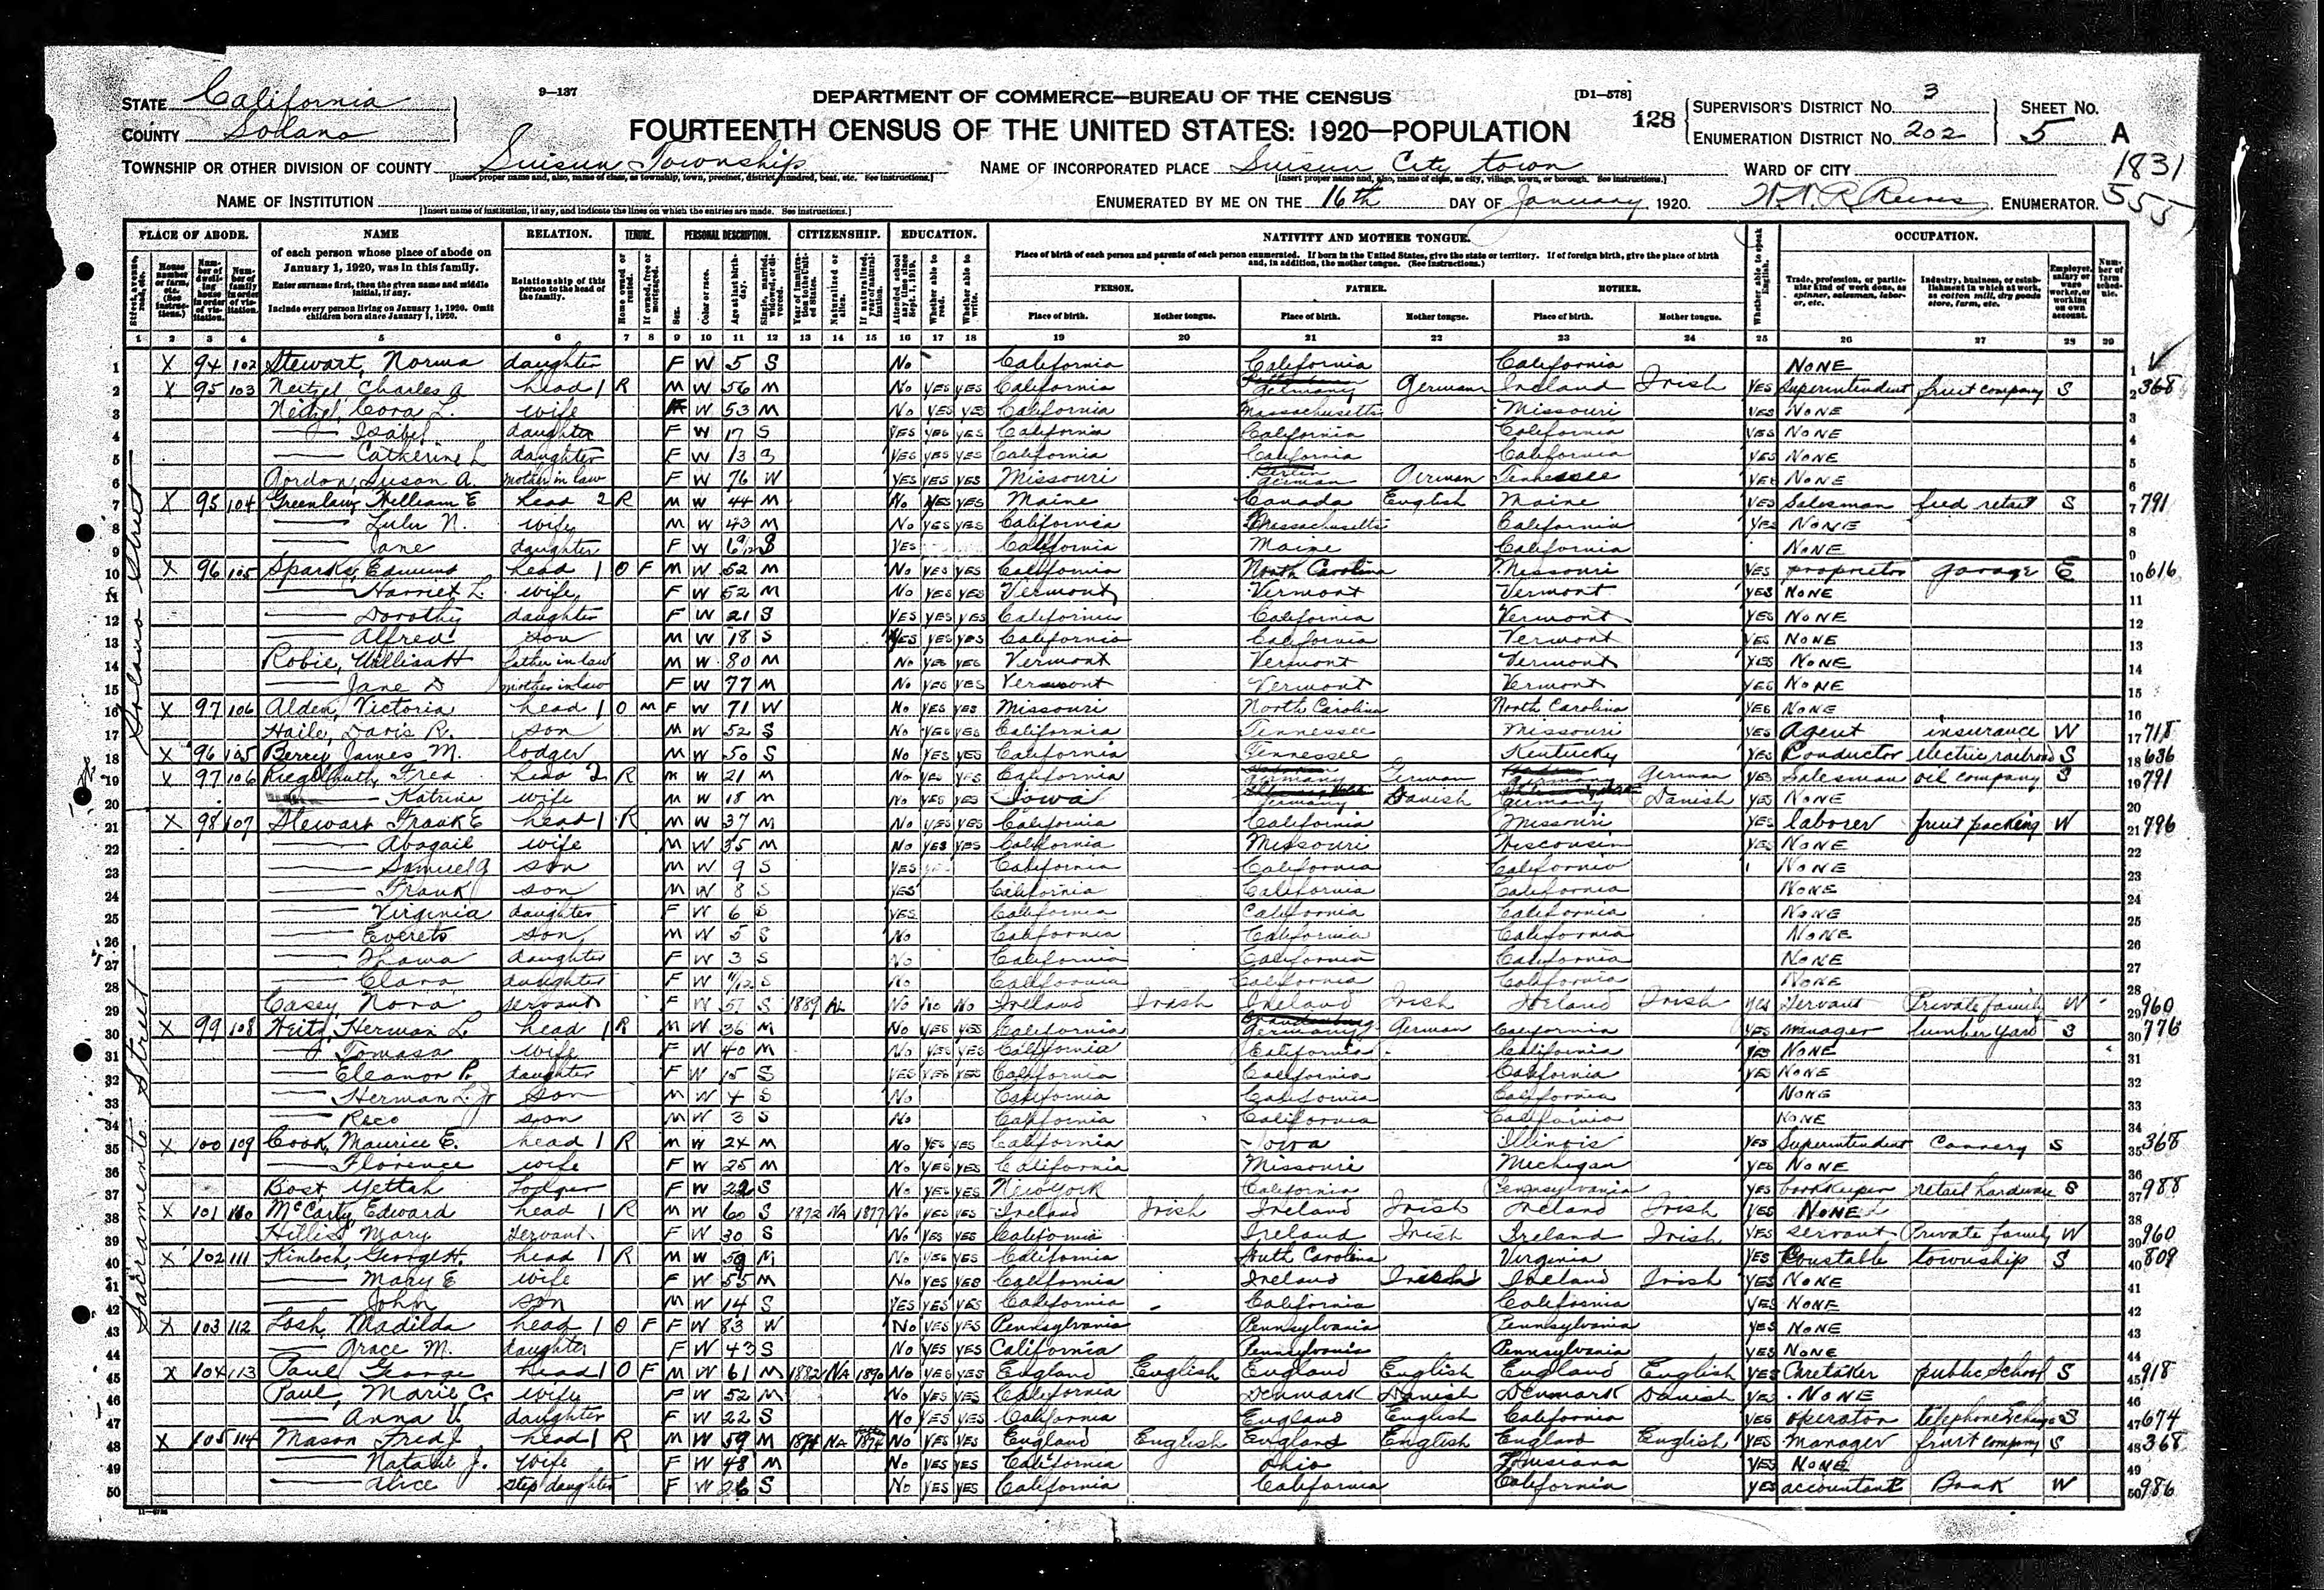 9—137
DEPARTMENT OF COMMERCE—BUREAU OF THE CENSUS
[D1—578]
STATE California
COUNTY Solano
FOURTEENTH CENSUS OF THE UNITED STATES: 1920—POPULATION
128
SUPERVISOR'S DISTRICT No. 3
ENUMERATION DISTRICT No. 202
SHEET No. 5 A
1831
555
TOWNSHIP OR OTHER DIVISION OF COUNTY Suisun Township
NAME OF INCORPORATED PLACE Suisun City town
WARD OF CITY
NAME OF INSTITUTION
ENUMERATED BY ME ON THE 16th DAY OF January, 1920. ENUMERATOR.
PLACE OF ABODE. NAME RELATION. TENURE. PERSONAL DESCRIPTION. CITIZENSHIP. EDUCATION. NATIVITY AND MOTHER TONGUE. OCCUPATION.
of each person whose place of abode on January 1, 1920, was in this family.
Enter surname first, then the given name and middle initial, if any.
Include every person living on January 1, 1920. Omit children born since January 1, 1920.
Relationship of this person to the head of the family.
Place of birth of each person and parents of each person enumerated. If born in the United States, give the state or territory. If of foreign birth, give the place of birth and, in addition, the mother tongue. (See Instructions.)
PERSON. FATHER. MOTHER.
Place of birth. Mother tongue. Place of birth. Mother tongue. Place of birth. Mother tongue.
1 2 3 4 5 6 7 8 9 10 11 12 13 14 15 16 17 18 19 20 21 22 23 24 25 26 27 28 29
Solano Street
Sacramento Street
1 X 94 102 Stewart, Norma daughter F W 5 S No California California California NONE
2 X 95 103 Neitzel Charles A head 1 R M W 56 M No YES YES California Germany German Ireland Irish YES Superintendent fruit company S 368
3 Neitzel, Cora L. wife F W 53 M No YES YES California Massachusetts Missouri YES NONE
4 Isabel daughter F W 17 S YES YES YES California California California YES NONE
5 Catherine L daughter F W 13 S YES YES YES California California California YES NONE
6 Gordon, Susan A. mother in law F W 76 W YES YES YES Missouri German German Tennessee YES NONE
7 X 95 104 Greenlaw, William E head 2 R M W 44 M No YES YES Maine Canada English Maine YES Salesman feed retail S 791
8 Lulu N. wife M W 43 M No YES YES California Massachusetts California YES NONE
9 Jane daughter F W S YES California Maine California NONE
10 X 96 105 Sparks, Edmund head 1 O F M W 52 M No YES YES California North Carolina Missouri YES proprietor garage E 616
11 Harriet L. wife F W 52 M No YES YES Vermont Vermont Vermont YES NONE
12 Dorothy daughter F W 21 S YES YES YES California California Vermont YES NONE
13 Alfred son M W 18 S YES YES YES California California Vermont YES NONE
14 Robie, William H father in law M W 80 M No YES YES Vermont Vermont Vermont YES NONE
15 Jane D mother in law F W 77 M No YES YES Vermont Vermont Vermont YES NONE
16 X 97 106 Alden, Victoria head 1 O M F W 71 W No YES YES Missouri North Carolina North Carolina YES NONE
17 Haile, Davis R. son M W 52 S No YES YES California Tennessee Missouri YES Agent insurance W 718
18 X 96 105 Berry James M. lodger M W 50 S No YES YES California Tennessee Kentucky YES Conductor electric railroad S 636
19 X 97 106 Fred head 2 R M W 21 M No YES YES California Germany German Germany German YES Salesman oil company S 791
20 Katrina wife M W 18 M No YES YES Iowa Germany Danish Germany Danish YES NONE
21 X 98 107 Stewart Frank E head 1 R M W 37 M No YES YES California California Missouri YES laborer fruit packing W 796
22 Abagail wife M W 35 M No YES YES California Missouri Wisconsin YES NONE
23 Samuel G son M W 9 S YES California California California NONE
24 Frank son M W 8 S YES California California California NONE
25 Virginia daughter F W 6 S YES California California California NONE
26 Everets son M W 5 S No California California California NONE
27 daughter F W 3 S No California California California NONE
28 Clara daughter F W S No California California California NONE
29 Casey, Nora servant F W 57 S 1889 AL No No No Ireland Irish Ireland Irish Ireland Irish YES Servant Private family W 960
30 X 99 108 Herman L. head 1 R M W 36 M No YES YES California Germany German California YES manager lumber yard S 776
31 Tomasa wife F W 40 M No YES YES California California California YES NONE
32 Eleanor P. daughter F W 15 S YES YES YES California California California YES NONE
33 Herman L. Jr son M W 4 S No California California California NONE
34 Reco son M W 3 S No California California California NONE
35 X 100 109 Cook, Maurice E. head 1 R M W 24 M No YES YES California Iowa Illinois YES Superintendent Cannery S 368
36 Florence wife F W 25 M No YES YES California Missouri Michigan YES NONE
37 Bost, Yettah Lodger F W 22 S No YES YES New York California Pennsylvania YES bookkeeper retail hardware S 988
38 X 101 110 McCarty Edward head 1 R M W 60 S 1872 NA 1877 No YES YES Ireland Irish Ireland Irish Ireland Irish YES NONE
39 Hillis Mary Servant F W 30 S No YES YES California Ireland Irish Ireland Irish YES servant Private family W 960
40 X 102 111 Kinloch, George H. head 1 R M W 59 M No YES YES California South Carolina Virginia YES Constable township S 809
41 Mary E wife F W 55 M No YES YES California Ireland Irish Ireland Irish YES NONE
42 John son M W 14 S YES YES YES California California California YES NONE
43 X 103 112 Losh, Madilda head 1 O F F W 83 W No YES YES Pennsylvania Pennsylvania Pennsylvania YES NONE
44 Grace M. daughter F W 43 S No YES YES California Pennsylvania Pennsylvania YES NONE
45 X 104 113 Paul George head 1 O F M W 61 M 1882 NA 1890 No YES YES England English England English England English YES Caretaker public School S 918
46 Paul, Marie C. wife F W 52 M No YES YES California Denmark Danish Denmark Danish YES NONE
47 Anna V. daughter F W 22 S No YES YES California England English California YES operator telephone Exchange S 674
48 X 105 114 Mason Fred J. head 1 R M W 59 M 1874 NA 1874 No YES YES England English England English England English YES manager fruit company S 368
49 Natalie J. wife F W 48 M No YES YES California Ohio Louisiana YES NONE
50 Alice step daughter F W 26 S No YES YES California California California YES accountant Bank W 986